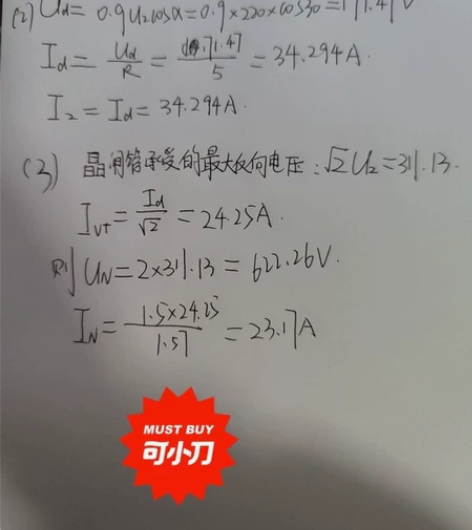 (2) Ud = 0.9U₂cosα = 0.9×220×cos30 = 171.47V
Id = Ud/R = 171.47/5 = 34.294A.
I₂ = Id = 34.294A.
(3) 晶闸管承受的最大反向电压:√2U₂=311.13.
IVT = Id/√2 = 24.25A.
则 UN = 2×311.13 = 622.26V.
IN = 1.5×24.25/1.57 = 23.17A
MUST BUY
可小刀